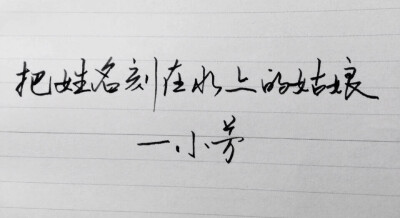 把姓名刻在水上的姑娘
一小芳